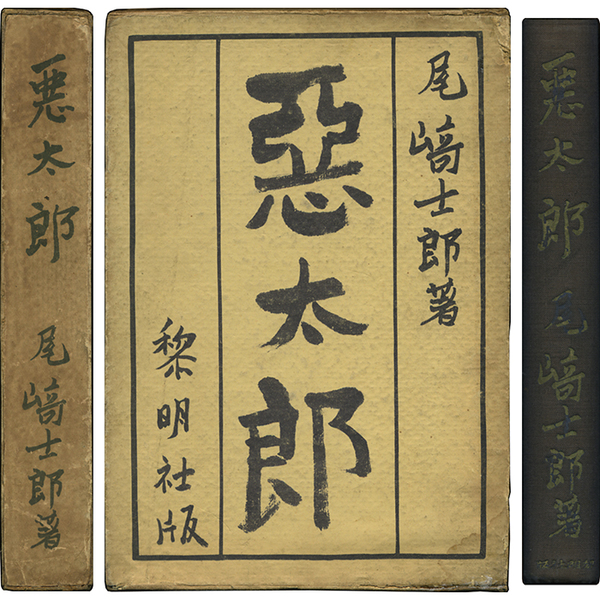 惡太郎
尾﨑士郎著
尾﨑士郎著
惡太郎
黎明社版
惡太郎
尾﨑士郎著